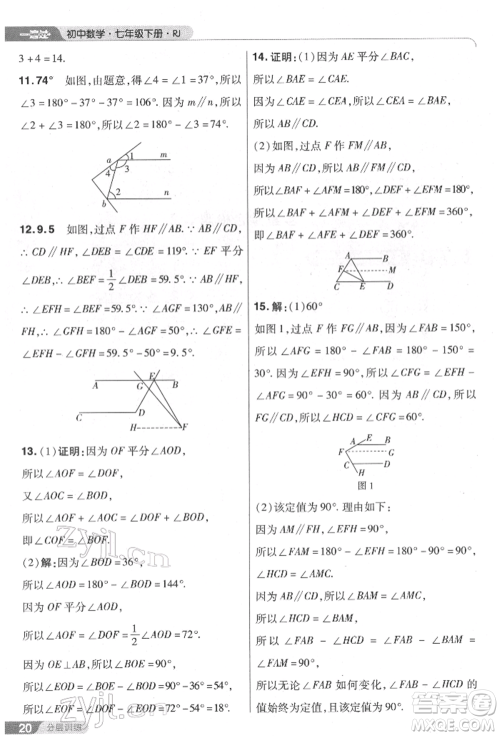 一遍过 初中数学·七年级下册·RJ
3+4=14.
11.74° 如图,由题意,得∠1=37°,所以
∠3=180°-37°-37°=106°. 因为 m∥n,所以
∠2+∠3=180°,所以∠2=180°-∠3=74°.
a 1 3 m
4
2
b n
12.9.5 如图,过点 F 作 HF∥AB. ∵AB∥CD,
∴CD∥HF,∠DEB=∠CDE=119°. ∵EF 平分
∠DEB,∴∠BEF=1/2∠DEB=59.5°. ∵HF∥AB,
∴∠EFH=∠BEF=59.5°. ∵∠AGF=130°,
∴∠GFH=180°-∠AGF=50°,∴∠GFE=
∠EFH-∠GFH=59.5°-50°=9.5°.
A G E B
C D
H F
13.(1)证明:因为 OF 平分∠AOD,
所以∠AOF=∠DOF=1/2∠AOD,
又∠AOC=∠BOD,
所以∠AOF+∠AOC=∠DOF+∠BOD,
即∠COF=∠BOF.
(2)解:因为∠BOD=36°,
所以∠AOD=180°-∠BOD=144°.
因为 OF 平分∠AOD,
所以∠DOF=1/2∠AOD=72°.
因为 OE⊥AB,所以∠BOE=90°,
所以∠EOD=∠BOE-∠BOD=90°-36°=54°,
所以∠EOF=∠DOF-∠EOD=72°-54°=18°.
14.证明:(1)因为 AE 平分∠BAC,
所以∠BAE=∠CAE.
因为∠CAE=∠CEA,所以∠BAE=∠CEA,
所以 AB∥CD.
(2)如图,过点 F 作 FM∥AB,
因为 AB∥CD,所以 AB∥FM∥CD,
所以∠BAF+∠AFM=180°,∠DEF+∠EFM=180°,
所以∠BAF+∠AFM+∠DEF+∠EFM=360°,
即∠BAF+∠AFE+∠DEF=360°.
A B
F M
C E D
15.解:(1)60°
如图1,过点 F 作 FG∥AB,因为∠FAB=150°,
所以∠AFG=180°-∠FAB=180°-150°=30°.
因为∠AFH=90°,所以∠GFH=∠AFH-
∠AFG=90°-30°=60°. 因为 AB∥CD,所以
FG∥CD,所以∠HCD=∠GFH=60°.
E A B
F G
C D
H
图1
(2)该定值为90°. 理由如下:
因为 AM∥FH,∠EFH=90°,
所以∠EAM=∠EFH=90°,
所以∠FAM=90°,
所以∠BAM=∠FAB-∠FAM=∠FAB-90°.
因为 AB∥CD,所以∠AMC=∠BAM=∠FAB-90°.
因为 AM∥FH,所以∠HCD=∠AMC,
所以∠HCD=∠FAB-90°,
所以∠FAB-∠HCD=90°,
所以无论∠FAB 如何变化,∠FAB-∠HCD 的
值始终为定值,该定值为90°.
20 分层训练
zyjl.cn